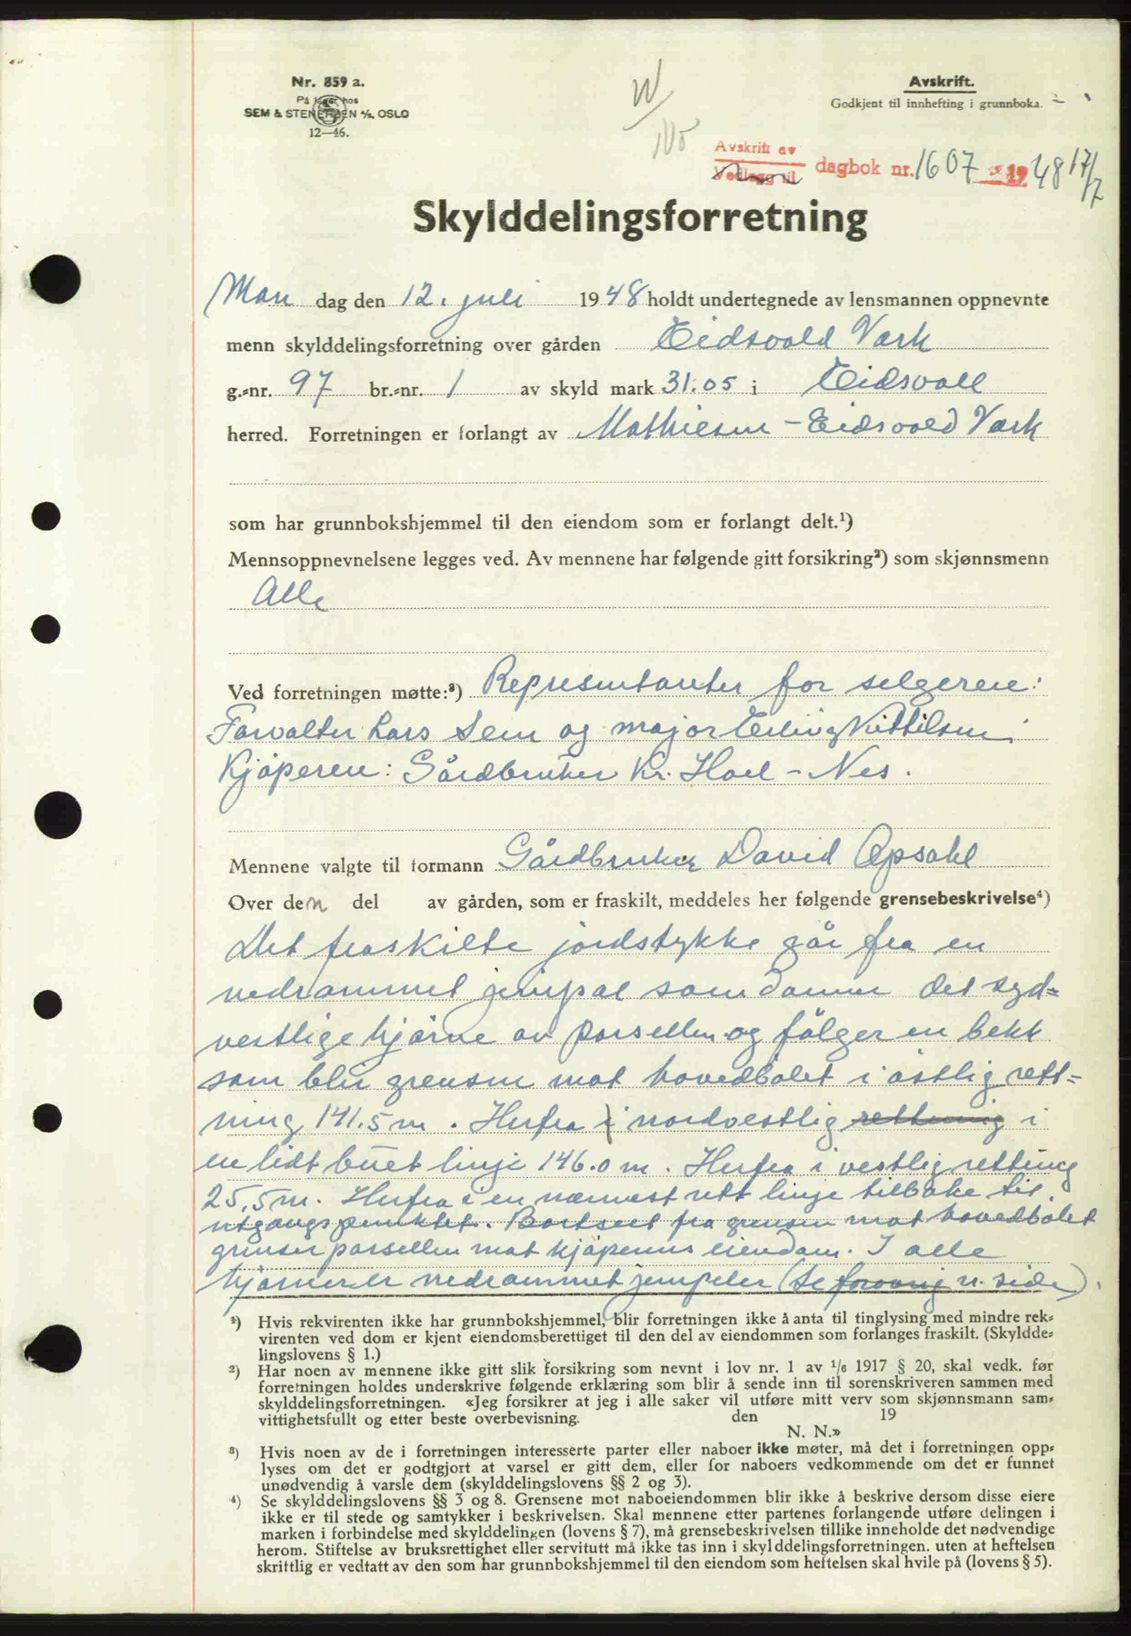 Nr. 859 a.
På lager hos
SEM & STENERSEN A/S, OSLO
12—46.
Avskrift.
Godkjent til innhefting i grunnboka.
Avskrift av
Vedlegg til
dagbok nr. 1607 1948 17/7
Skylddelingsforretning
Man dag den 12. juli 1948 holdt undertegnede av lensmannen oppnevnte
menn skylddelingsforretning over gården Eidsvold Værk
g.-nr. 97 br.-nr. 1 av skyld mark 31.05 i Eidsvoll
herred. Forretningen er forlangt av Mathiesen – Eidsvold Værk
som har grunnbokshjemmel til den eiendom som er forlangt delt.¹)
Mennsoppnevnelsene legges ved. Av mennene har følgende gitt forsikring²) som skjønnsmenn
Alle
Ved forretningen møtte:³) Representanter for selgeren:
Forvalter Lars Sem og major Erling Kittilsen
Kjøperen: Gårdbruker Kr. Hoel – Nes.
Mennene valgte til formann Gårdbruker David Opsahl
Over den del av gården, som er fraskilt, meddeles her følgende grensebeskrivelse⁴)
Det fraskilte jordstykke går fra en
nedrammet jernpæl som danner det syd-
vestlige hjørne av parsellen og følger en bekk
som blir grensen mot hovedbølet i østlig rett-
ning 141.5 m. Herfra i nordvestlig rettning i
en lidt buet linje 146.0 m. Herfra i vestlig rettning
25,5 m. Herfra i en nærmest rett linje tilbake til
utgangspunktet. Bortsett fra grensen mot hovedbølet
grenser parsellen mot kjøperens eiendom. I alle
hjørner er nedrammet jernpeler (se n. side).
¹) Hvis rekvirenten ikke har grunnbokshjemmel, blir forretningen ikke å anta til tinglysing med mindre rek-
virenten ved dom er kjent eiendomsberettiget til den del av eiendommen som forlanges fraskilt. (Skyldde-
lingslovens § 1.)
²) Har noen av mennene ikke gitt slik forsikring som nevnt i lov nr. 1 av 1/6 1917 § 20, skal vedk. før
forretningen holdes underskrive følgende erklæring som blir å sende inn til sorenskriveren sammen med
skylddelingsforretningen. «Jeg forsikrer at jeg i alle saker vil utføre mitt verv som skjønnsmann sam-
vittighetsfullt og etter beste overbevisning. den 19
N. N.»
³) Hvis noen av de i forretningen interesserte parter eller naboer ikke møter, må det i forretningen opp-
lyses om det er godtgjort at varsel er gitt dem, eller for naboers vedkommende om det er funnet
unødvendig å varsle dem (skylddelingslovens §§ 2 og 3).
⁴) Se skylddelingslovens §§ 3 og 8. Grensene mot naboeiendommen blir ikke å beskrive dersom disse eiere
ikke er til stede og samtykker i beskrivelsen. Skal mennene etter partenes forlangende utføre delingen i
marken i forbindelse med skylddelingen (lovens § 7), må grensebeskrivelsen tillike inneholde det nødvendige
herom. Stiftelse av bruksrettighet eller servitutt må ikke tas inn i skylddelingsforretningen, uten at heftelsen
skriftlig er vedtatt av den som har grunnbokshjemmel til den eiendom som heftelsen skal hvile på (lovens § 5).